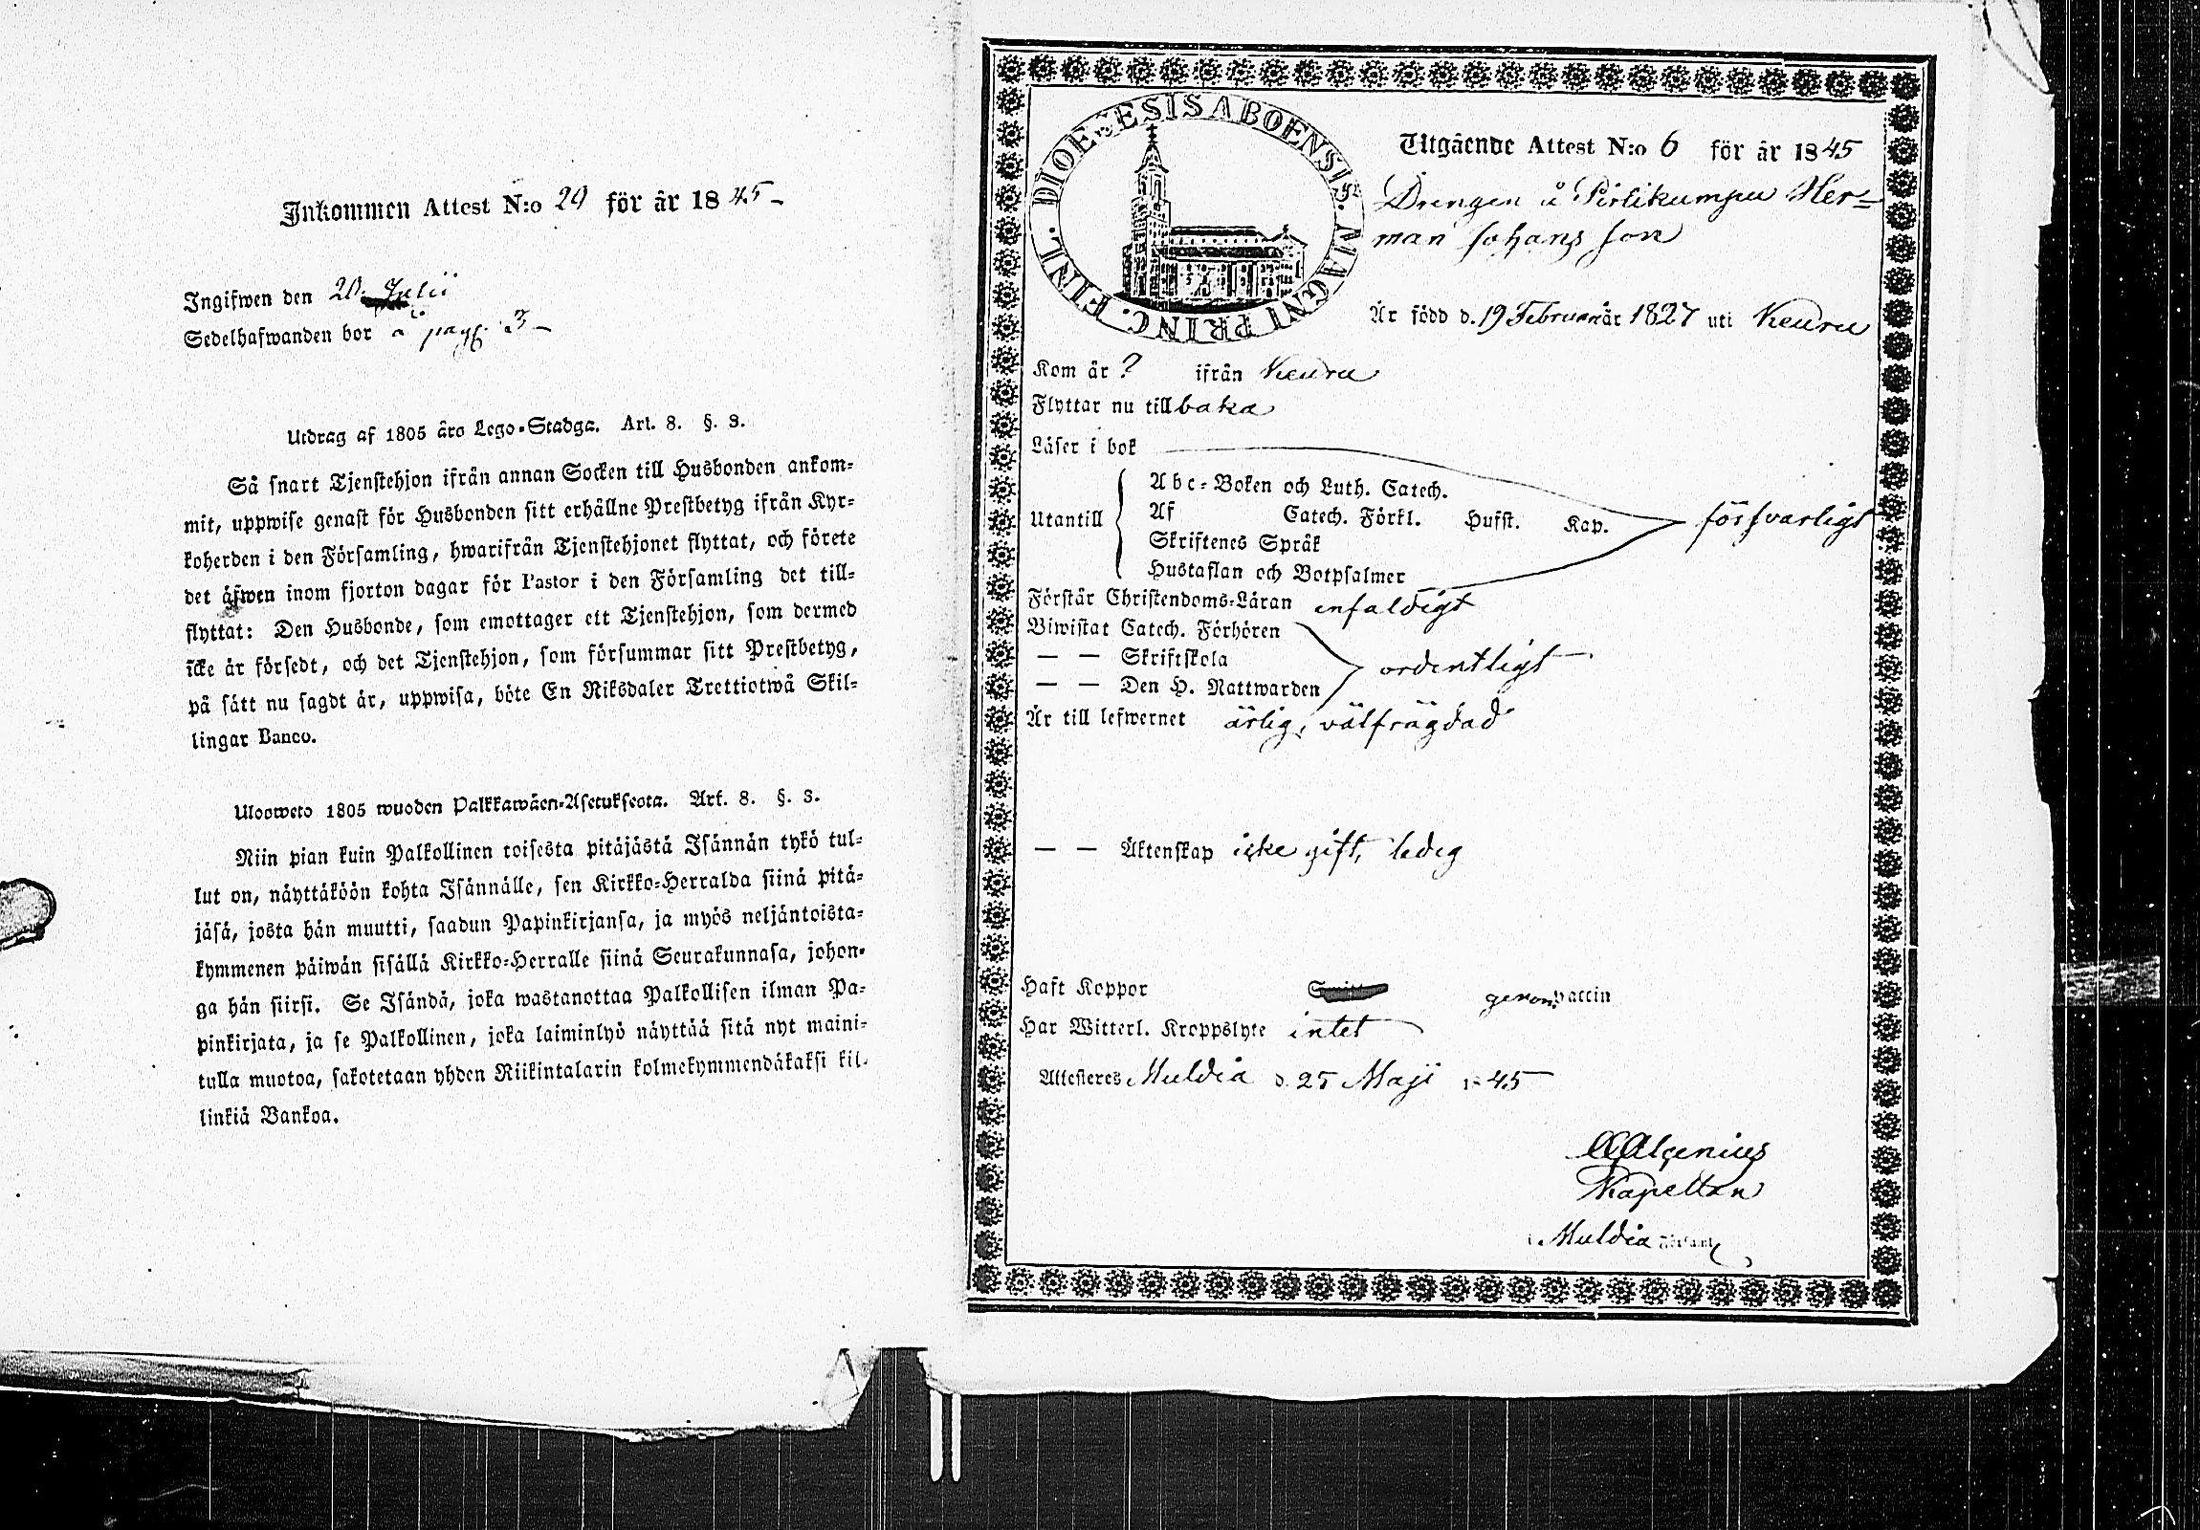 Inkommen Attest N:o 29 för år 1845 –
Ingifwen den 20 Julii
Sedelhafwanden bor å pag. 3 –
Utdrag af 1805 års Lego-Stadga. Art. 8. §. 3.
Så snart Tjenstehjon ifrån annan Socken till Husbonden ankom-
mit, uppwise genast för Husbonden sitt erhållne Prestbetyg ifrån Kyr-
koherden i den Församling, hwarifrån Tjenstehjonet flyttat, och förete
det äfwen inom fjorton dagar för Pastor i den Församling det till-
flyttat: Den Husbonde, som emottager ett Tjenstehjon, som dermed
icke är försedt, och det Tjenstehjon, som försummar sitt Prestbetyg,
på sätt nu sagdt är, uppwisa, böte En Riksdaler Trettiotwå Skil-
lingar Banco.
Ulosweto 1805 wuoden Palkkawäen-Asetuksesta. Art. 8. §. 3.
Niin pian kuin Palkollinen toisesta pitäjästä Isännän tykö tul-
lut on, näyttäköön kohta Isännälle, sen Kirkko-Herralda siinä pitä-
jäsä, josta hän muutti, saadun Papinkirjansa, ja myös neljäntoista-
kymmenen päiwän sisällä Kirkko-Herralle siinä Seurakunnasa, johon-
ga hän siirsi. Se Isändä, joka wastanottaa Palkollisen ilman Pa-
pinkirjata, ja se Palkollinen, joka laiminlyö näyttää sitä nyt maini-
tulla muotoa, sakotetaan yhden Riikintalarin kolmekymmendäkaksi kil-
linkiä Bankoa.
DIOECESIS ABOENSIS. MAGNI PRINC. FINL.
Utgående Attest N:o 6 för år 1845
Drengen å Pirlikumpu Her=
man Johans son
Är född d. 19 Februari år 1827 uti Keuru
Kom år ? ifrån Keuru
Flyttar nu tillbaka
Läser i bok
Utantill
Abc-Boken och Luth. Catech.
Af Catech. Förkl. Hufst. Kap. försvarligt
Skriftenes Språk
Hustaflan och Botpsalmer
Förstår Christendoms-Läran enfaldigt
Biwistat Catech. Förhören
— — Skriftskola ordentligt
— — Den H. Nattwarden
Är till lefwernet ärlig, välfrägdad
— — Äktenskap icke gift, ledig
Haft Koppor genom vaccin
Har Witterl. Kroppslyte intet
Attesteres Muldia d. 25 Maji 1845
Algenius
Kapellan
i Muldia Förs